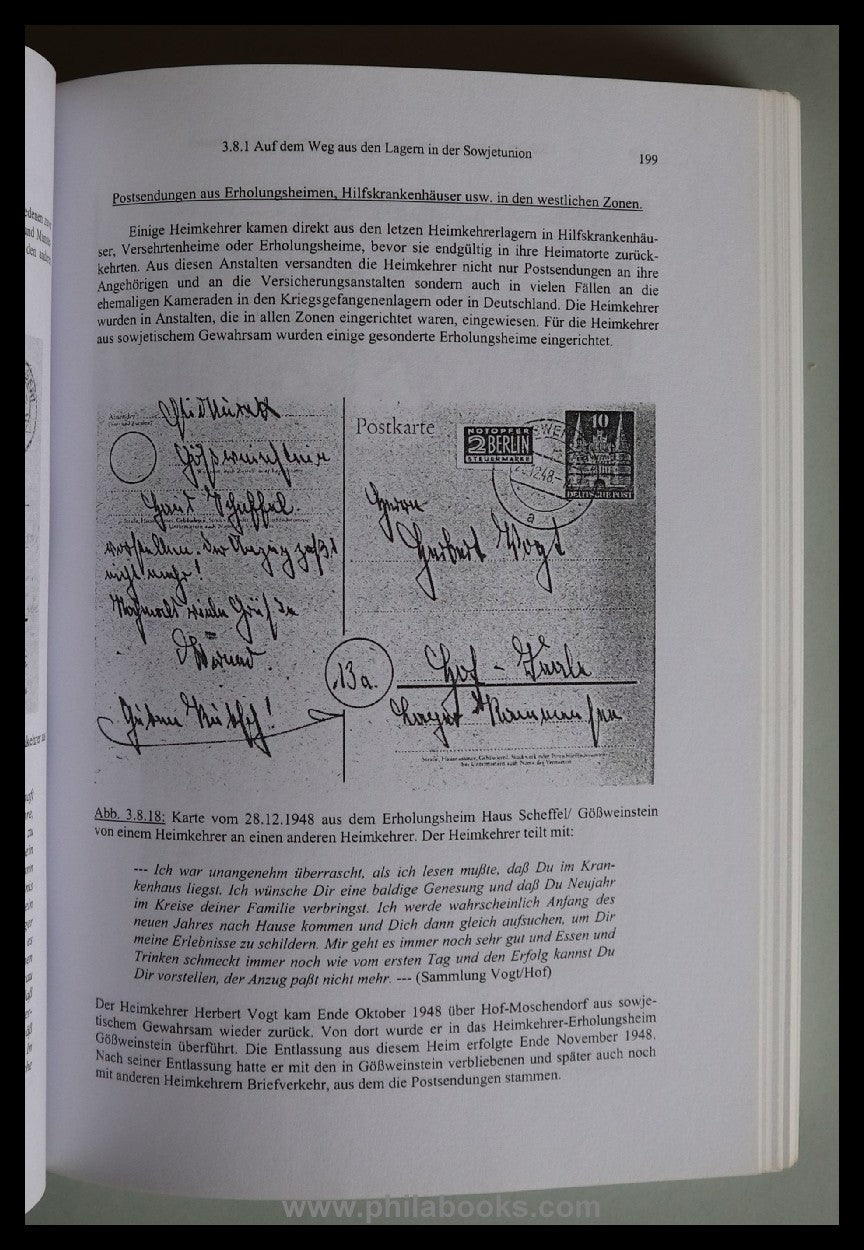 3.8.1 Auf dem Weg aus den Lagern in der Sowjetunion
199
Postsendungen aus Erholungsheimen, Hilfskrankenhäuser usw. in den westlichen Zonen.
Einige Heimkehrer kamen direkt aus den letzen Heimkehrerlagern in Hilfskrankenhäu-
ser, Versehrtenheime oder Erholungsheime, bevor sie endgültig in ihre Heimatorte zurück-
kehrten. Aus diesen Anstalten versandten die Heimkehrer nicht nur Postsendungen an ihre
Angehörigen und an die Versicherungsanstalten sondern auch in vielen Fällen an die
ehemaligen Kameraden in den Kriegsgefangenenlagern oder in Deutschland. Die Heimkehrer
wurden in Anstalten, die in allen Zonen eingerichtet waren, eingewiesen. Für die Heimkehrer
aus sowjetischem Gewahrsam wurden einige gesonderte Erholungsheime eingerichtet.
Absender:
Gößweinstein
Haus Scheffel.
vorstellen. Der Anzug paßt
nicht mehr!
Nochmals viele Grüße
Guten Rutsch!
Postkarte
NOTOPFER
2 BERLIN
STEUERMARKE
10
DEUTSCHE POST
12.48
a
Herrn
Herbert Vogt
13a
Hof - Saale
Straße, Hausnummer, Gebäudeteil, Stockwerk oder Postschließfachnummer
Abb. 3.8.18: Karte vom 28.12.1948 aus dem Erholungsheim Haus Scheffel/ Gößweinstein
von einem Heimkehrer an einen anderen Heimkehrer. Der Heimkehrer teilt mit:
--- Ich war unangenehm überrascht, als ich lesen mußte, daß Du im Kran-
kenhaus liegst. Ich wünsche Dir eine baldige Genesung und daß Du Neujahr
im Kreise deiner Familie verbringst. Ich werde wahrscheinlich Anfang des
neuen Jahres nach Hause kommen und Dich dann gleich aufsuchen, um Dir
meine Erlebnisse zu schildern. Mir geht es immer noch sehr gut und Essen und
Trinken schmeckt immer noch wie vom ersten Tag und den Erfolg kannst Du
Dir vorstellen, der Anzug paßt nicht mehr. --- (Sammlung Vogt/Hof)
Der Heimkehrer Herbert Vogt kam Ende Oktober 1948 über Hof-Moschendorf aus sowje-
tischem Gewahrsam wieder zurück. Von dort wurde er in das Heimkehrer-Erholungsheim
Gößweinstein überführt. Die Entlassung aus diesem Heim erfolgte Ende November 1948.
Nach seiner Entlassung hatte er mit den in Gößweinstein verbliebenen und später auch noch
mit anderen Heimkehrern Briefverkehr, aus dem die Postsendungen stammen.
www.philabooks.com